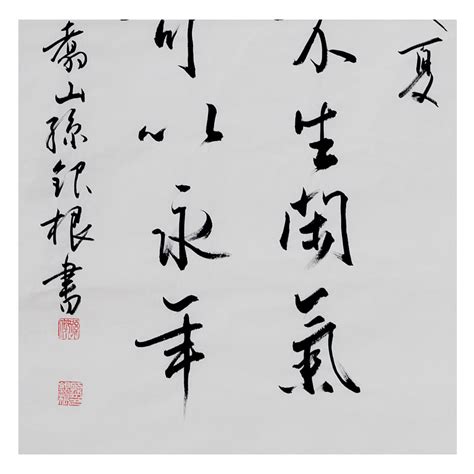 夏
不生閑氣
可以永年
山孫銀根書